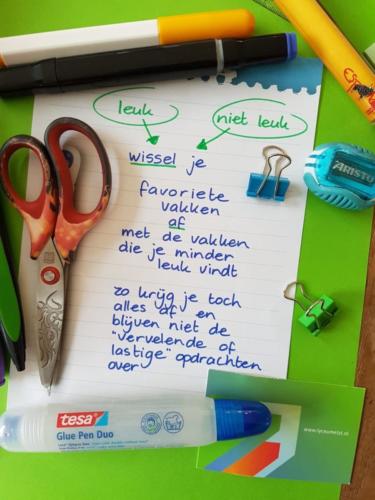 leuk
niet leuk
wissel je
favoriete
vakken
af
met de vakken
die je minder
leuk vindt
zo krijg je toch
alles af en
blijven niet de
"vervelende of
lastige" opdrachten
over
ARISTO
tesa
Glue Pen Duo